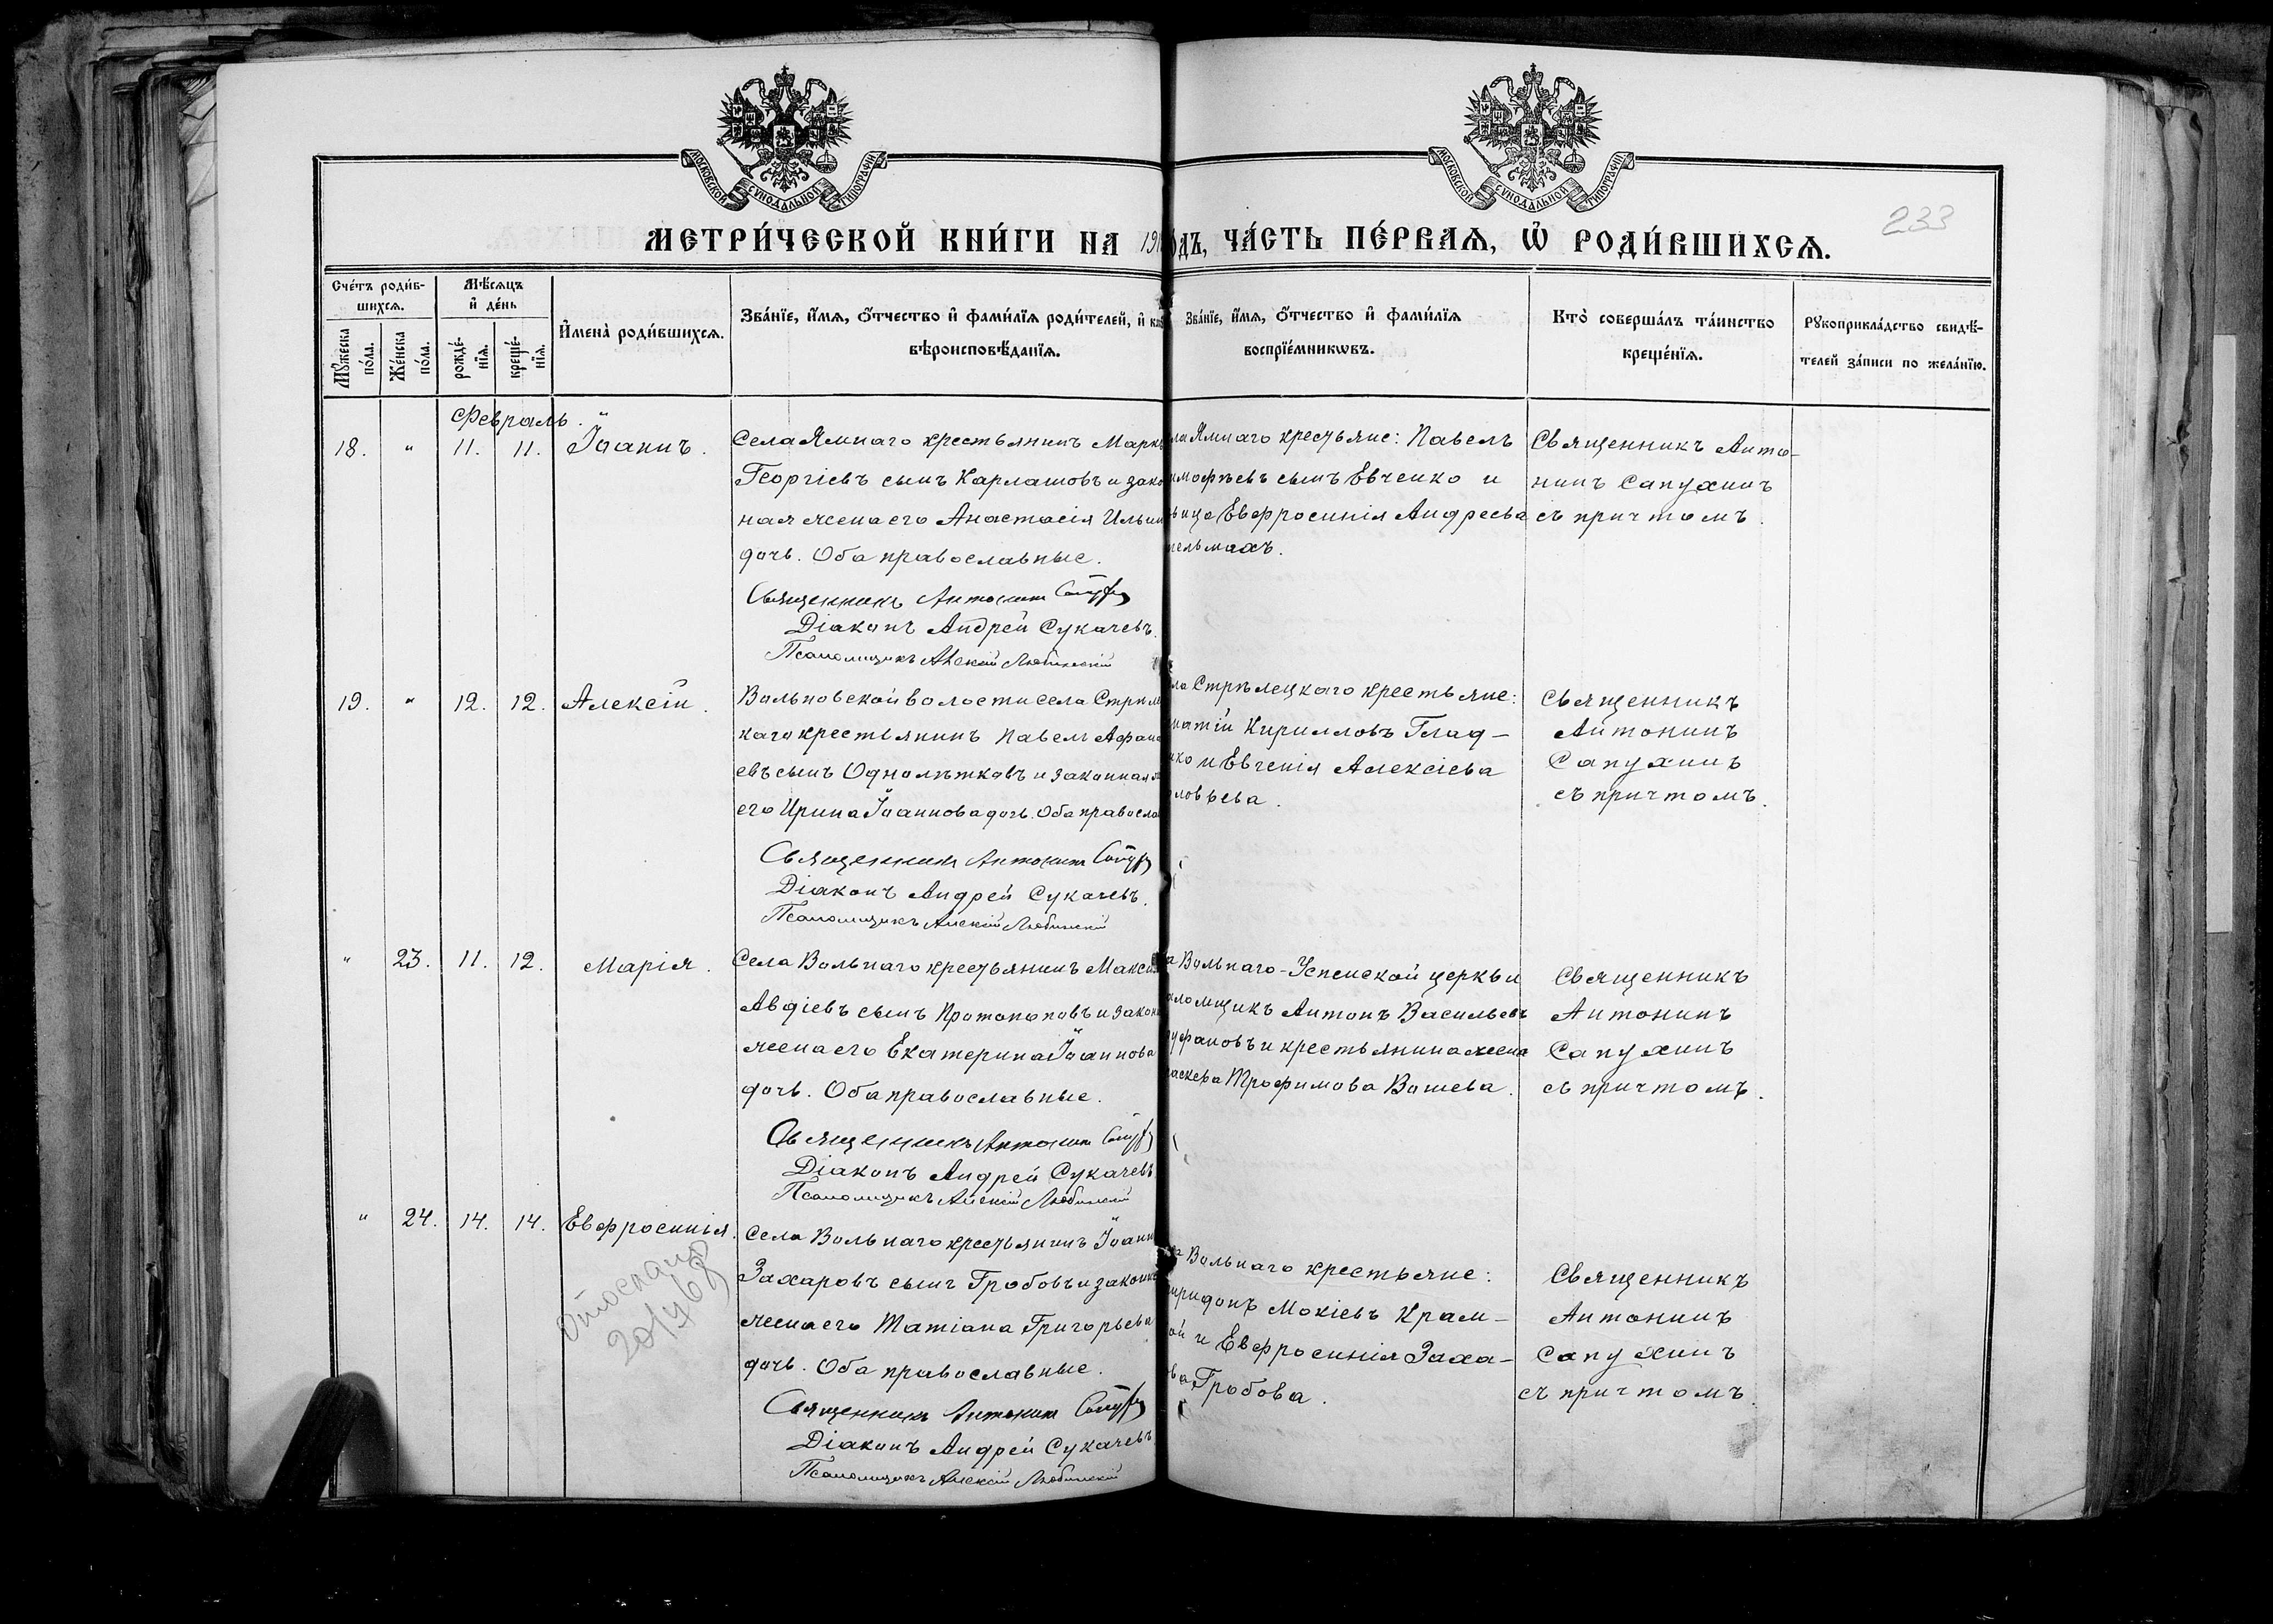 МОСКОВСКОЙ СУНОДАЛЬНОЙ ТИПОГРАФІИ
МОСКОВСКОЙ СУНОДАЛЬНОЙ ТИПОГРАФІИ
233
МЕТРИ́ЧЕСКОЙ КНИ́ГИ НА 191
ОДЪ, ЧА́СТЬ ПЕ́РВАѦ, Ѡ҆ РОДИ́ВШИХСѦ.
Сче́тъ роди́в-
шихсѧ.
Мѣ́сѧцъ
и҆ де́нь
Мꙋ́жеска
по́ла.
Же́нска
по́ла.
рожде́-
нїѧ.
креще́-
нїѧ.
И҆мена̀ роди́вшихсѧ.
Зва́нїе, и҆́мѧ, ѻ҆́тчество и҆ фами́лїѧ роди́телей, и҆
вѣроисповѣ́данїѧ.
Зва́нїе, и҆́мѧ, ѻ҆́тчество и҆ фами́лїѧ
воспрїе́мникѡвъ.
Кто̀ соверша́лъ та́инство
креще́нїѧ.
Рꙋкоприкла́дство свидѣ́-
телей за́писи по жела́нїю.
Февраль.
18. " 11. 11. Іоаннъ.
Села Ямнаго крестьянинъ Марк
Георгіевъ сынъ Карлашовъ и зако
ная жена его Анастасія Ильин
дочь. Оба православные.
Священникъ Антонин
Діаконъ Андрей Сукачевъ.
Псаломщикъ Алексій Любинскій
ла Ямнаго крестьяне: Павелъ
имофѣевъ сынъ Евченко и
вица Евфросинія Андреева
тельмахъ.
Священникъ Анто-
нинъ Сапухинъ
съ причтомъ.
19. " 12. 12. Алексій.
Вольновской волости села Стрѣле
каго крестьянинъ Павелъ Афана
евъ сынъ Однолѣтковъ и законная
его Ирина Іоаннова дочь. Оба правосла
Священникъ Антонин
Діаконъ Андрей Сукачевъ.
Псаломщикъ Алексій Любинскій
ла Стрѣлецкаго крестьяне:
натій Кирилловъ Глад-
ко и Евгенія Алексіева
ловьева.
Священникъ
Антонинъ
Сапухинъ
съ причтомъ.
" 23. 11. 12. Марія.
Села Вольнаго крестьянинъ Макси
Авдіевъ сынъ Протопоповъ и закон
жена его Екатерина Іоаннова
дочь. Оба православные.
Священникъ Антонин
Діаконъ Андрей Сукачевъ
Псаломщикъ Алексій Любинскій
а Вольнаго-Успенской церкви
ломщикъ Антонъ Васильевъ
уфановъ и крестьянина жена
аскева Трофимова Вошева.
Священникъ
Антонинъ
Сапухинъ
съ причтомъ.
" 24. 14. 14. Евфросинія.
Села Вольнаго крестьянинъ Іоанн
Захаровъ сынъ Гробовъ и законн
жена его Татіана Григорьева
дочь. Оба православные.
Священникъ Антонин
Діаконъ Андрей Сукачевъ
Псаломщикъ Алексій Любинскій
Вольнаго крестьяне:
иридонъ Мокіевъ Крам-
ой и Евфросинія Заха-
ова Гробова.
Священникъ
Антонинъ
Сапухинъ
съ причтомъ.